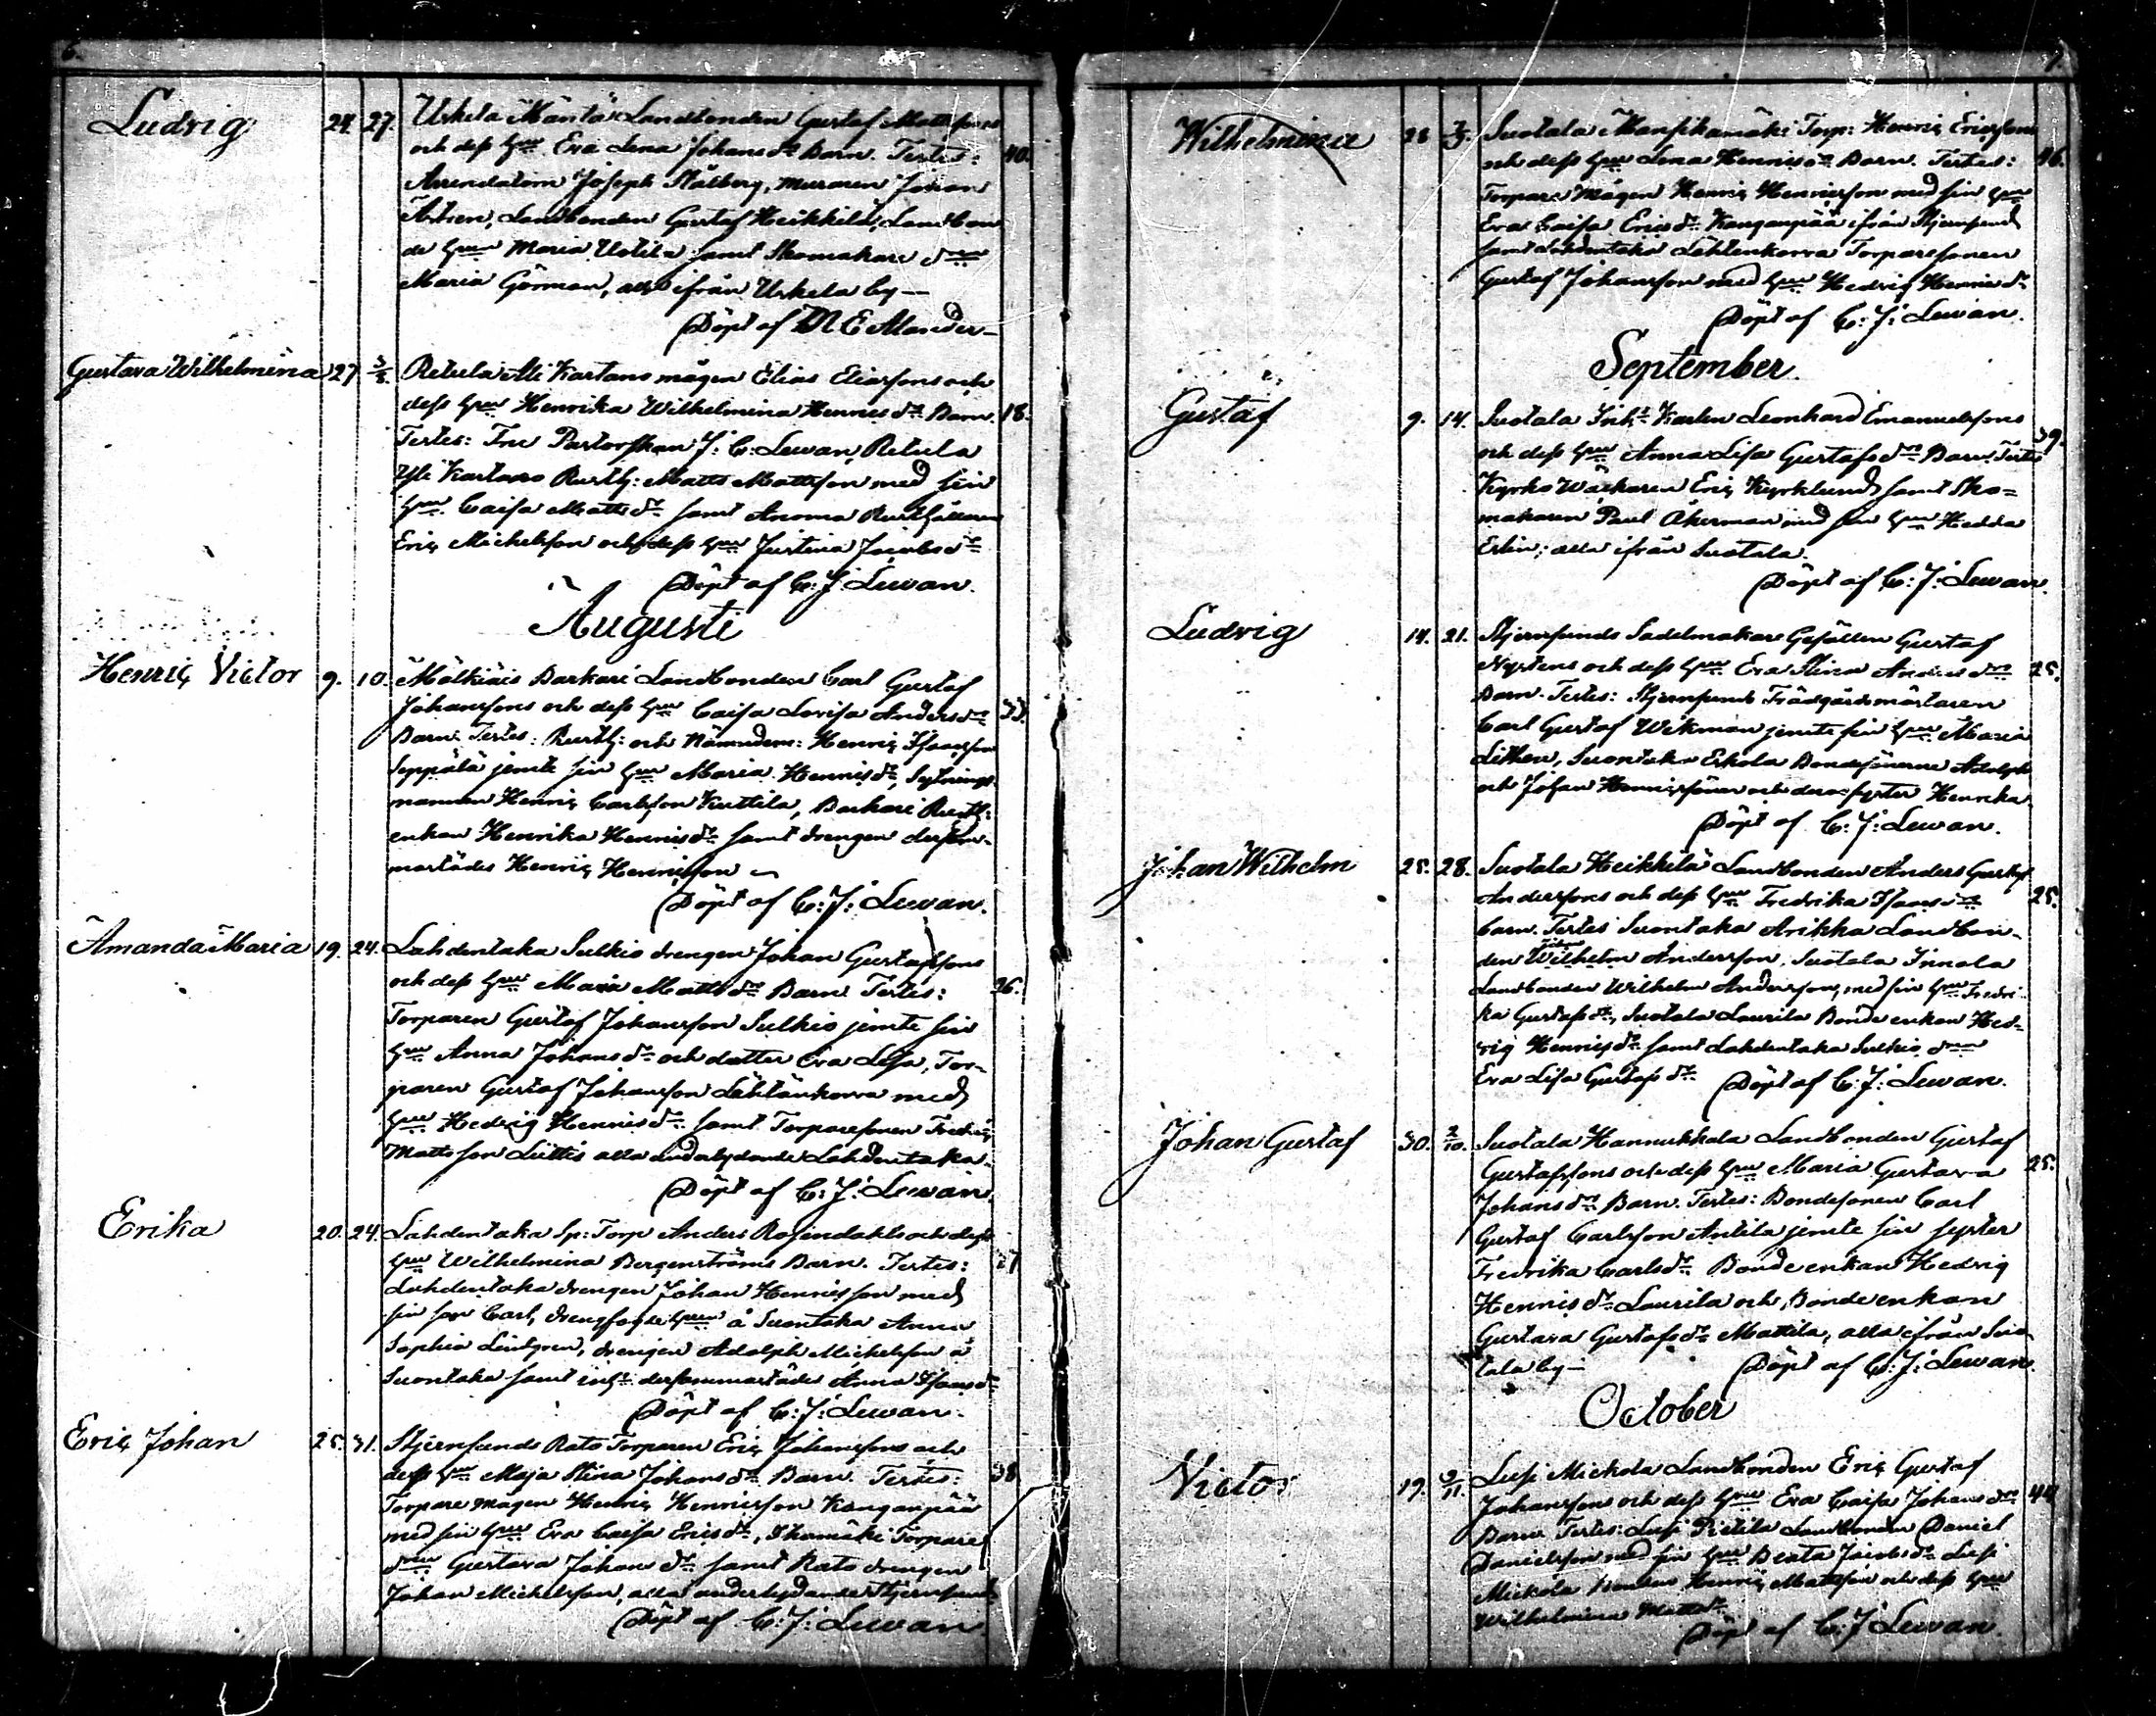 6.
Ludvig 24. 27. Urkela Mäntä Landbonden Gustaf Mattssons
och dess hru Eva Lena Johansdr Barn. Testes: 40.
Arrendatorn Joseph Stålberg, muraren Johan
Landbonden Gustaf Heikkilä, Landbon
de hru Maria Uotila samt Skomakare
Maria Görman, alla ifrån Urkela by —
Döpt af E Alander
Gustava Wilhelmina 27 3/8. Retula Ali Kartano mågen Elias Eliassons och
dess hru Henrika Wilhelmina Henricsdr Barn. 18.
Testes: Fru Pastorskan J. C. Lewan, Retula
Yli Kartano Rusth: Matts Mattsson med sin
hru Caisa Mattsdr samt Anoma Rusthållaren
Eric Michelsson och dess hru Justina Jacobsdr
Döpt af C: J: Lewan.
Augusti
Henric Victor 9. 10. Mälkiäis Barkari Landbonden Carl Gustaf
Johanssons och dess hru Caisa Lovisa Andersdr 33.
Barn. Testes: Rusth: och Nämndem: Henric Isaacsson
Seppälä jemte sin hru Maria Henricsdr, Sytnings
mannen Henric Carlsson Kuttila, Barkari Rusth:
enkan Henrika Henricsdr samt drengen dersam-
mastädes Henric Henricsson
Döpt af C: J: Lewan.
Amanda Maria 19. 24. Lahdentaka Sulkio drengen Johan Gustafssons
och dess hru Maria Mattsdr Barn. Testes: 26.
Torparen Gustaf Johansson Sulkio jemte sin
hru Anna Johansdr och dotter Eva Lisa, Tor-
paren Gustaf Johansson Lähtänkorva med
hru Hedvig Henricsdr samt Torparesonen Fredric
Mattsson Lüttis alla underlydande Lahdentaka.
Döpt af C: J: Lewan.
Erika 20. 24. Lahdentaka Sp: Torp Anders Rosendahls och dess
hru Wilhelmina Bergenströms Barn. Testes: 27
Lahdentaka drengen Johan Henricsson med
sin son Carl, drengfogde hru å Suontaka Anna
Sophia Lindgren, drengen Adolph Michelsson å
Suontaka samt inhs dersammastädes Anna Isaacsdr
Döpt af C: J: Lewan.
Eric Johan 25. 31. Stjernsunds Rato Torparen Eric Johanssons och
dess hru Maja Stina Johansdr Barn. Testes: 38
Torpare mågen Henric Henricsson Kanganpää
med sin hru Eva Caisa Ericsdr, Ihamäki Torpare
Gustava Johansdr samt Rato drengen
Johan Michelsson, alla underlydande Stjernsund
Döpt af C: J: Lewan.
7.
Wilhelmina 28 Suotala Mansikamäki Torp: Henric Ericssons
och dess hru Lena Henricsdr Barn. Testes: 46.
Torpare Mågen Henric Henricsson med sin hru
Eva Caisa Ericsdr Kanganpää ifrån Stjernsund
samt Lahdentaka Lähtenkorva Torparesonen
Gustaf Johansson med hru Hedvig Henricsdr
Döpt af C: J: Lewan.
September.
Gustaf 9. 14. Suotala Inhs Karlen Leonhard Emanuelssons
och dess hru Anna Lisa Gustafsdr Barn. Testes 39.
Kyrko Wäktaren Eric Kyrklund samt Sko=
makaren Paul Åkerman med sin hru Hedda
Erlin; alla ifrån Suotala.
Döpt af C: J: Lewan.
Ludvig 14. 21. Stjernsunds Sadelmakare Gesällen Gustaf
Nystens och dess hru Eva Stina Andersdr 25.
Barn. Testes: Stjernsunds Trädgårdsmästaren
Carl Gustaf Wikman jemte sin hru Maria
Lithen, Suontaka Erkola Bondesönerne Adolph
och Johan Henricssöner och deras syster Henrika
Döpt af C: J: Lewan.
Johan Wilhelm 25. 28. Suotala Heikkilä Landbonden Anders Gustaf
Anderssons och dess hru Fredrika Isaacsdr 25.
barn. Testes Suontaka Arikka Landbon-
den Wilhelm Andersson, Suotala Innala
Landbonden Wilhelm Andersson, med sin hru Fredri-
ka Gustafsdr, Suotala Laurila Bonde enkan Hed-
vig Henricsdr samt Lahdentaka Sulkio
Eva Lisa Gustafsdr Döpt af C: J: Lewan.
Johan Gustaf 30. 2/10. Suotala Hannukkala Landbonden Gustaf
Gustafssons och dess hru Maria Gustava 25.
Johansdr Barn. Testes: Bondesonen Carl
Gustaf Carlsson Antila jemte sin syster
Fredrika Carlsdr Bonde enkan Hedvig
Henricsdr Laurila och Bonde enkan
Gustava Gustafsdr Mattila, alla ifrån Suo-
tala by — Döpt af C: J: Lewan.
October
Victor 19. 2/11. Lusi Mickola Landbonden Eric Gustaf
Johanssons och dess hru Eva Caisa Johansdr 44
Barn. Testes: Lusi Pietila Landbonden Daniel
Danielsson med sin hru Beata Jacobsdr Lusi
Mickola Bonden Henric Mattsson och dess hru
Wilhelmina Mattsdr
Döpt af C: J Lewan.